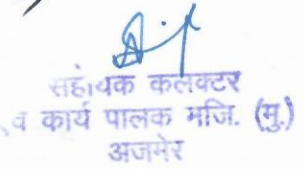 सहायक कलक्टर
व कार्य पालक मजि. (मु.)
अजमेर